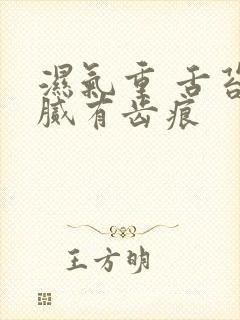 濕氣重 舌苔
膩有齒痕
王方明